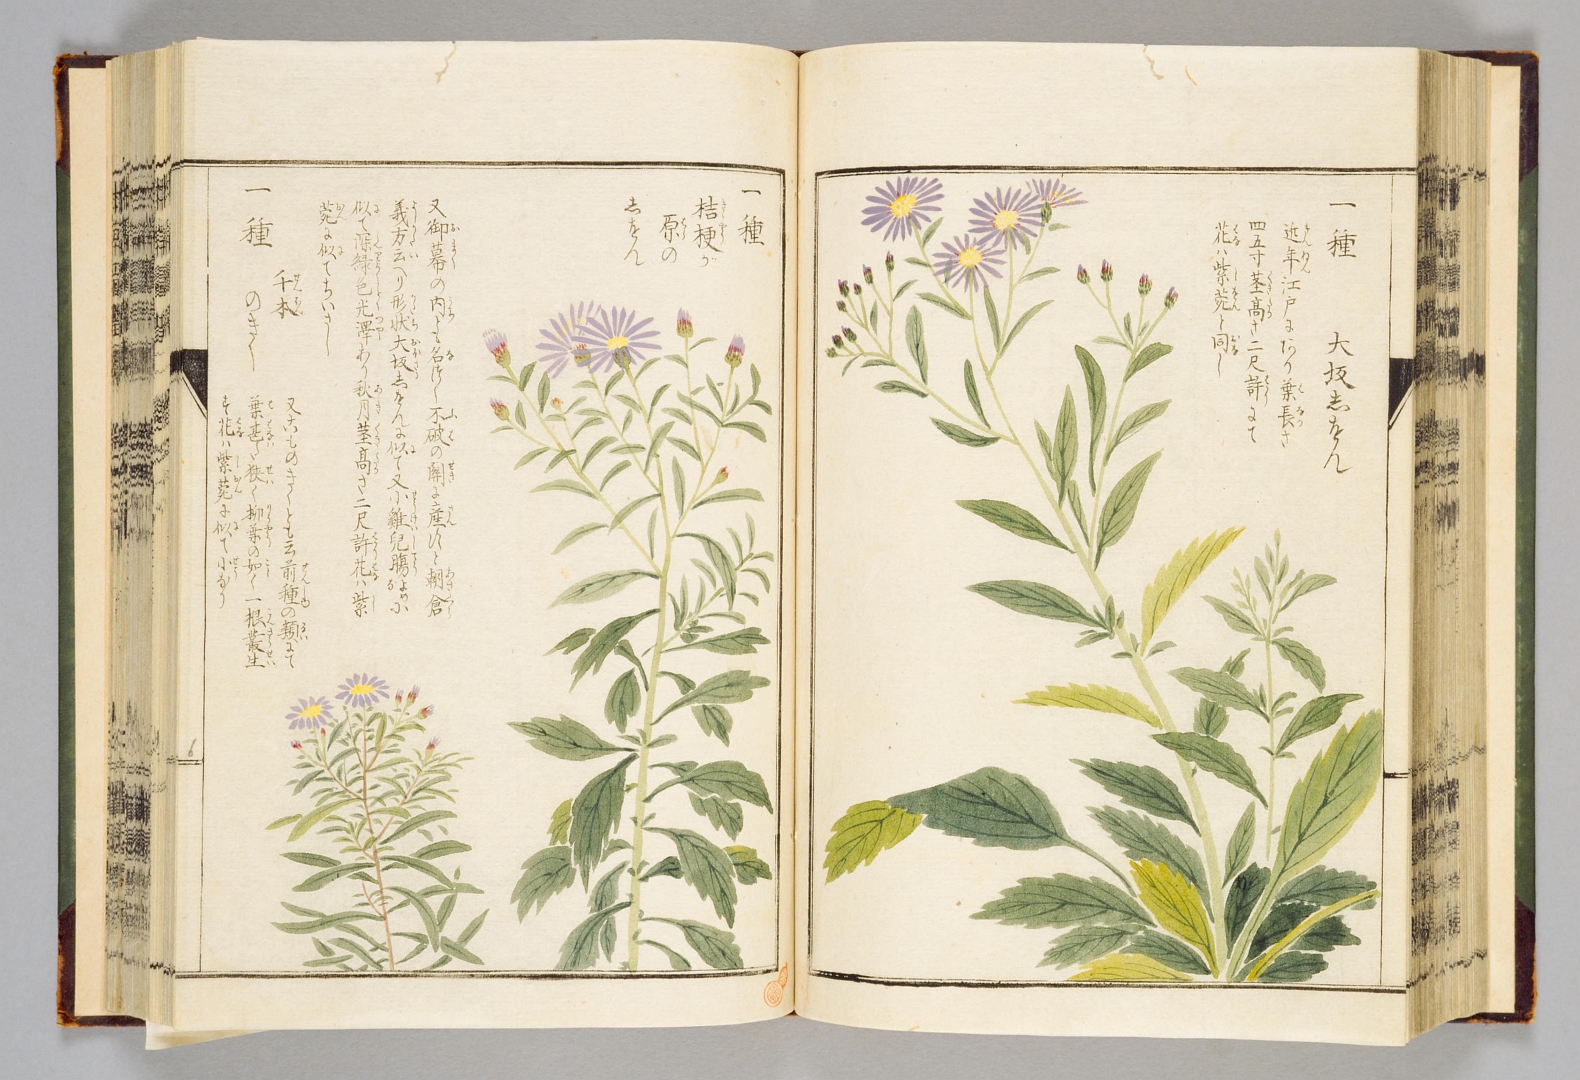 一種
大坂志をん
近年江戸にあり葉長さ
四五寸茎高さ二尺許にて
花ハ紫菀と同し
一種
桔梗が
原の
志をん
又御幕の内とも名付く不破の関に産すと朝倉
義方云へり形状大坂志をんに似て又小雞児腸よめなに
似て深緑色光澤あり秋月茎高さ二尺許花ハ紫
菀に似てちいさし
一種
千本
のぎく
又こものぎくとも云前種の類にて
葉甚だ狭く柳葉の如く一根叢生
す花ハ紫菀に似て小なり